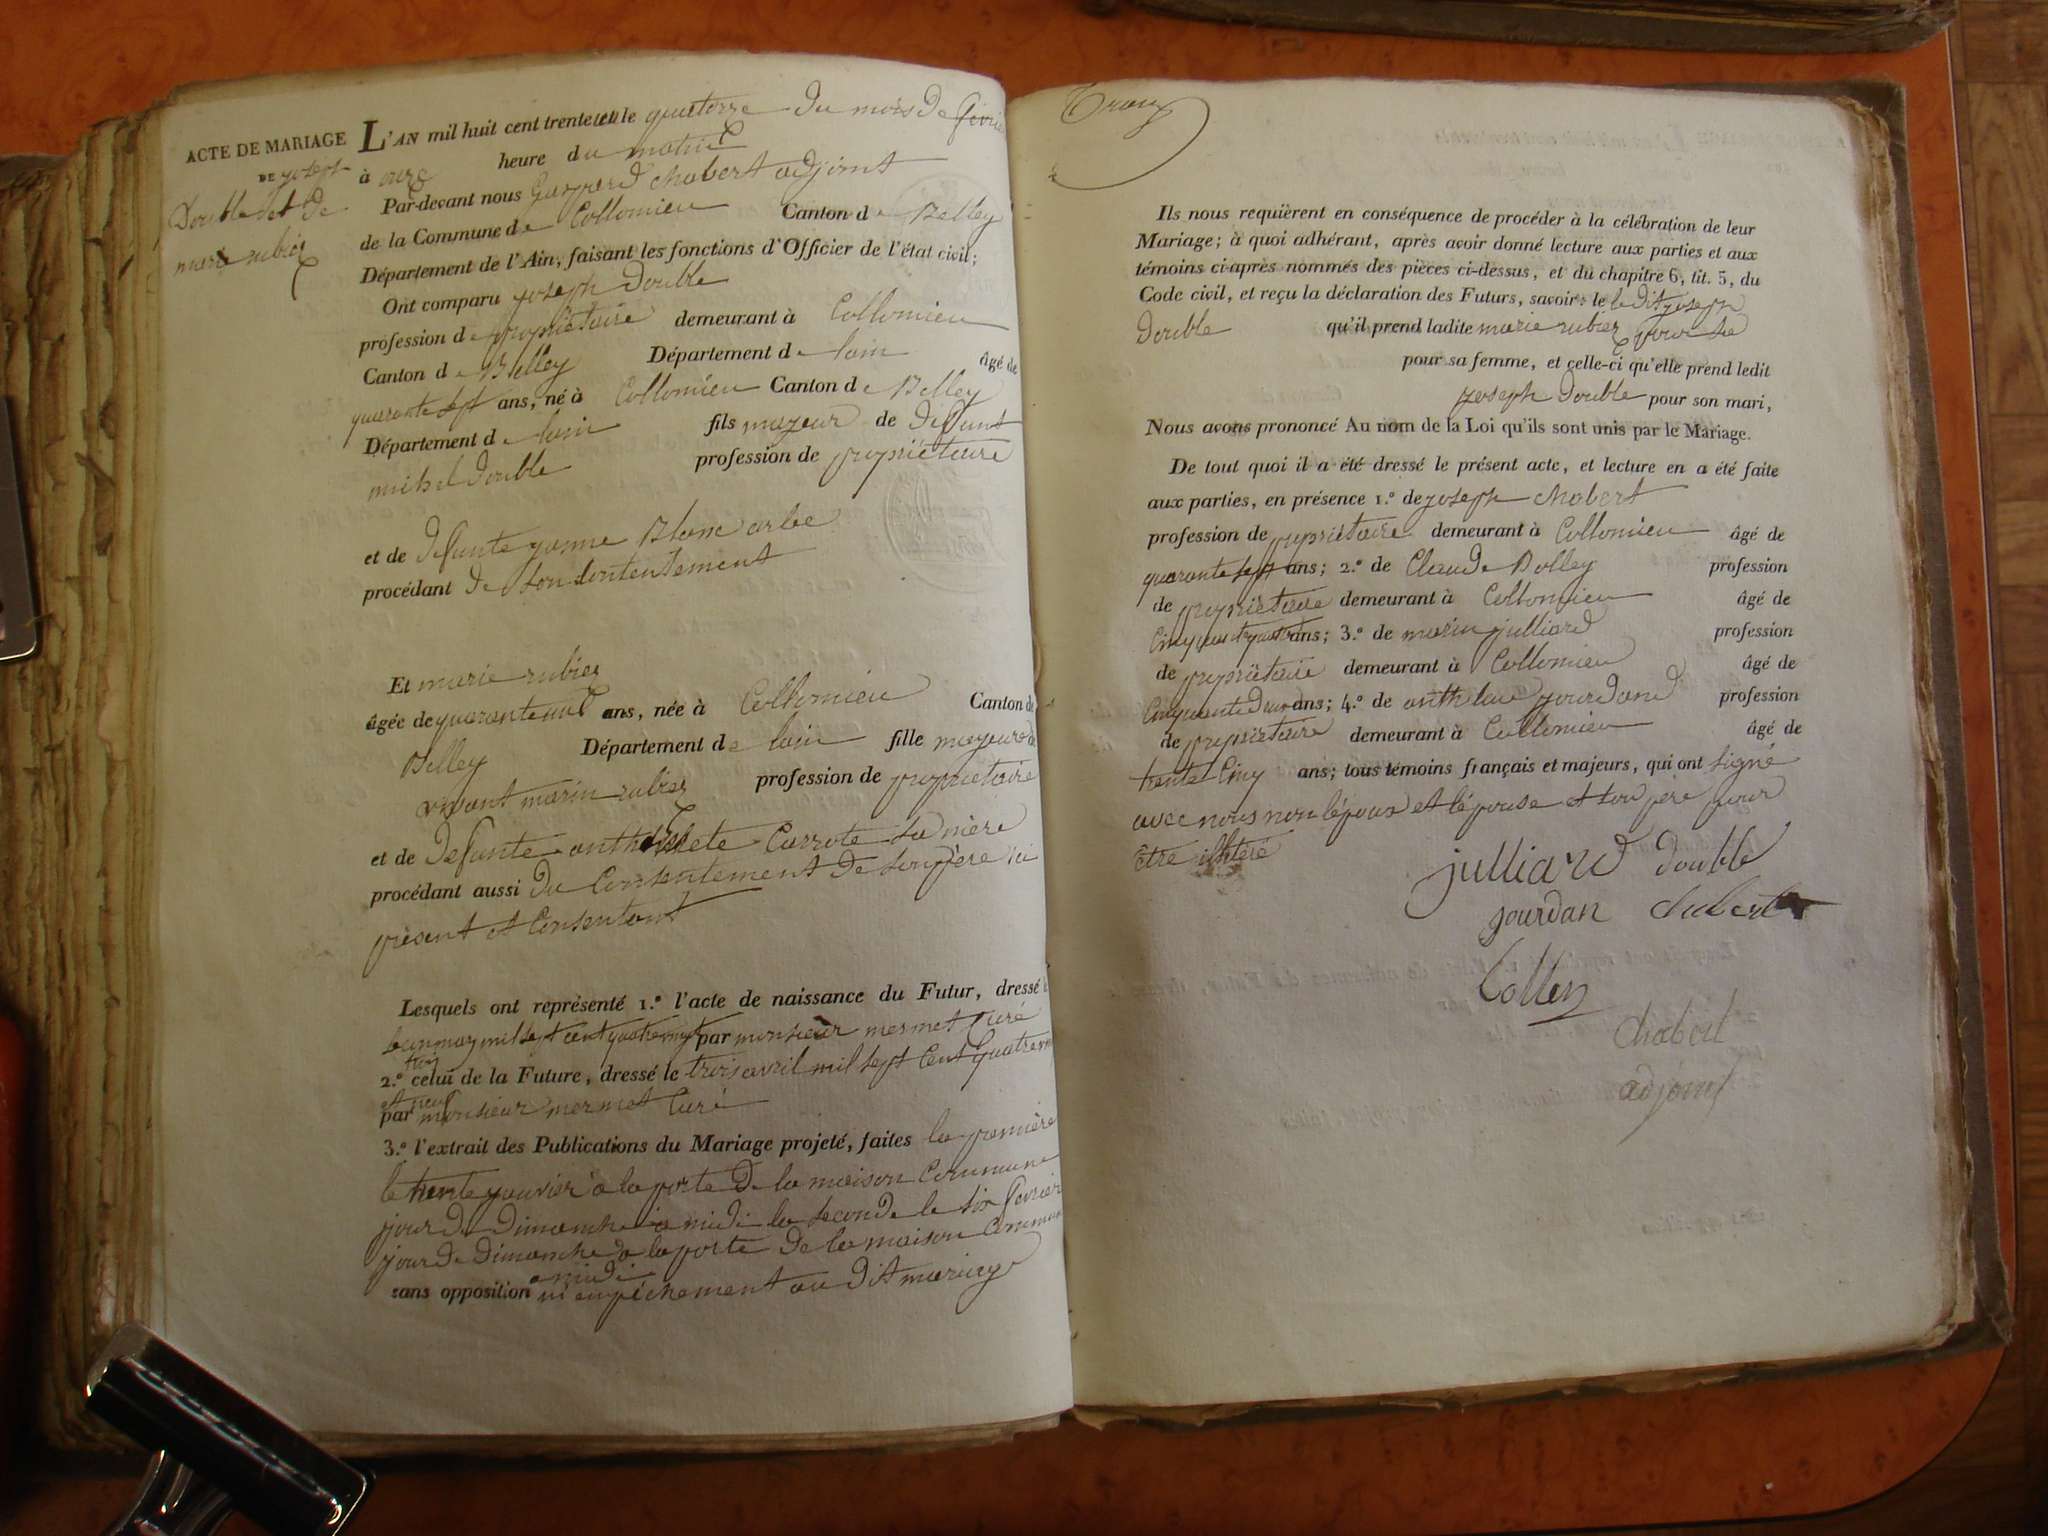 ACTE DE MARIAGE
DE joseph
Double et de
marie rubiez
L'AN mil huit cent trente un le quatorze du mois de fevrier
à onze heure du matin
Par-devant nous Gaspard chabert adjoint
de la Commune de Collomieu Canton de Belley
Département de l'Ain, faisant les fonctions d'Officier de l'état civil;
Ont comparu joseph Double
profession de propriétaire demeurant à Collomieu
Canton de Belley Département de lain âgé de
quarante sept ans, né à Collomieu Canton de Belley
Département de lain fils majeur de defunt
michel Double profession de propriétaire
et de defunte janne Blanc arbe
procédant de son contentement
Et marie rubiez
âgée de quarante un ans, née à Collomieu Canton de
Belley Département de lain fille majeure de
vivant marin rubiez profession de propriétaire
et de defunte Carrote sa mère
procédant aussi du Consentement de son père ici
présent et Consentant
Lesquels ont représenté 1.º l'acte de naissance du Futur, dressé le
may mil sept cent quatre vingt par monsieur mermet Curé
trois
2.º celui de la Future, dressé le trois avril mil sept Cent Quatre vin
et neuf
par monsieur mermet Curé
3.º l'extrait des Publications du Mariage projeté, faites la première
le trente janvier a la porte de la maison Commune
jour de Dimanche a midi la seconde le six fevrier
jour de Dimanche a la porte de la maison Commune
a midi
sans opposition ni empêchement au dit mariage
Ils nous requièrent en conséquence de procéder à la célébration de leur
Mariage; à quoi adhérant, après avoir donné lecture aux parties et aux
témoins ci-après nommés des pièces ci-dessus, et du chapitre 6, tit. 5, du
Code civil, et reçu la déclaration des Futurs, savoir: le ledit joseph
Double qu'il prend ladite marie rubiez pour sa
pour sa femme, et celle-ci qu'elle prend ledit
joseph Double pour son mari,
Nous avons prononcé Au nom de la Loi qu'ils sont unis par le Mariage.
De tout quoi il a été dressé le présent acte, et lecture en a été faite
aux parties, en présence 1.º de joseph chabert
profession de propriétaire demeurant à Collomieu âgé de
quarante sept ans; 2.º de Claude Dolley profession
de propriétaire demeurant à Collomieu âgé de
Cinquante quatre ans; 3.º de marin julliard profession
de propriétaire demeurant à Collomieu âgé de
Cinquante deux ans; 4.º de anthelme jourdand profession
de propriétaire demeurant à Collomieu âgé de
trente Cinq ans; tous témoins français et majeurs, qui ont signé
avec nous non lépoux et lépouse et son père pour
être illitéré
julliard double
jourdan chabert
chabert
adjoint